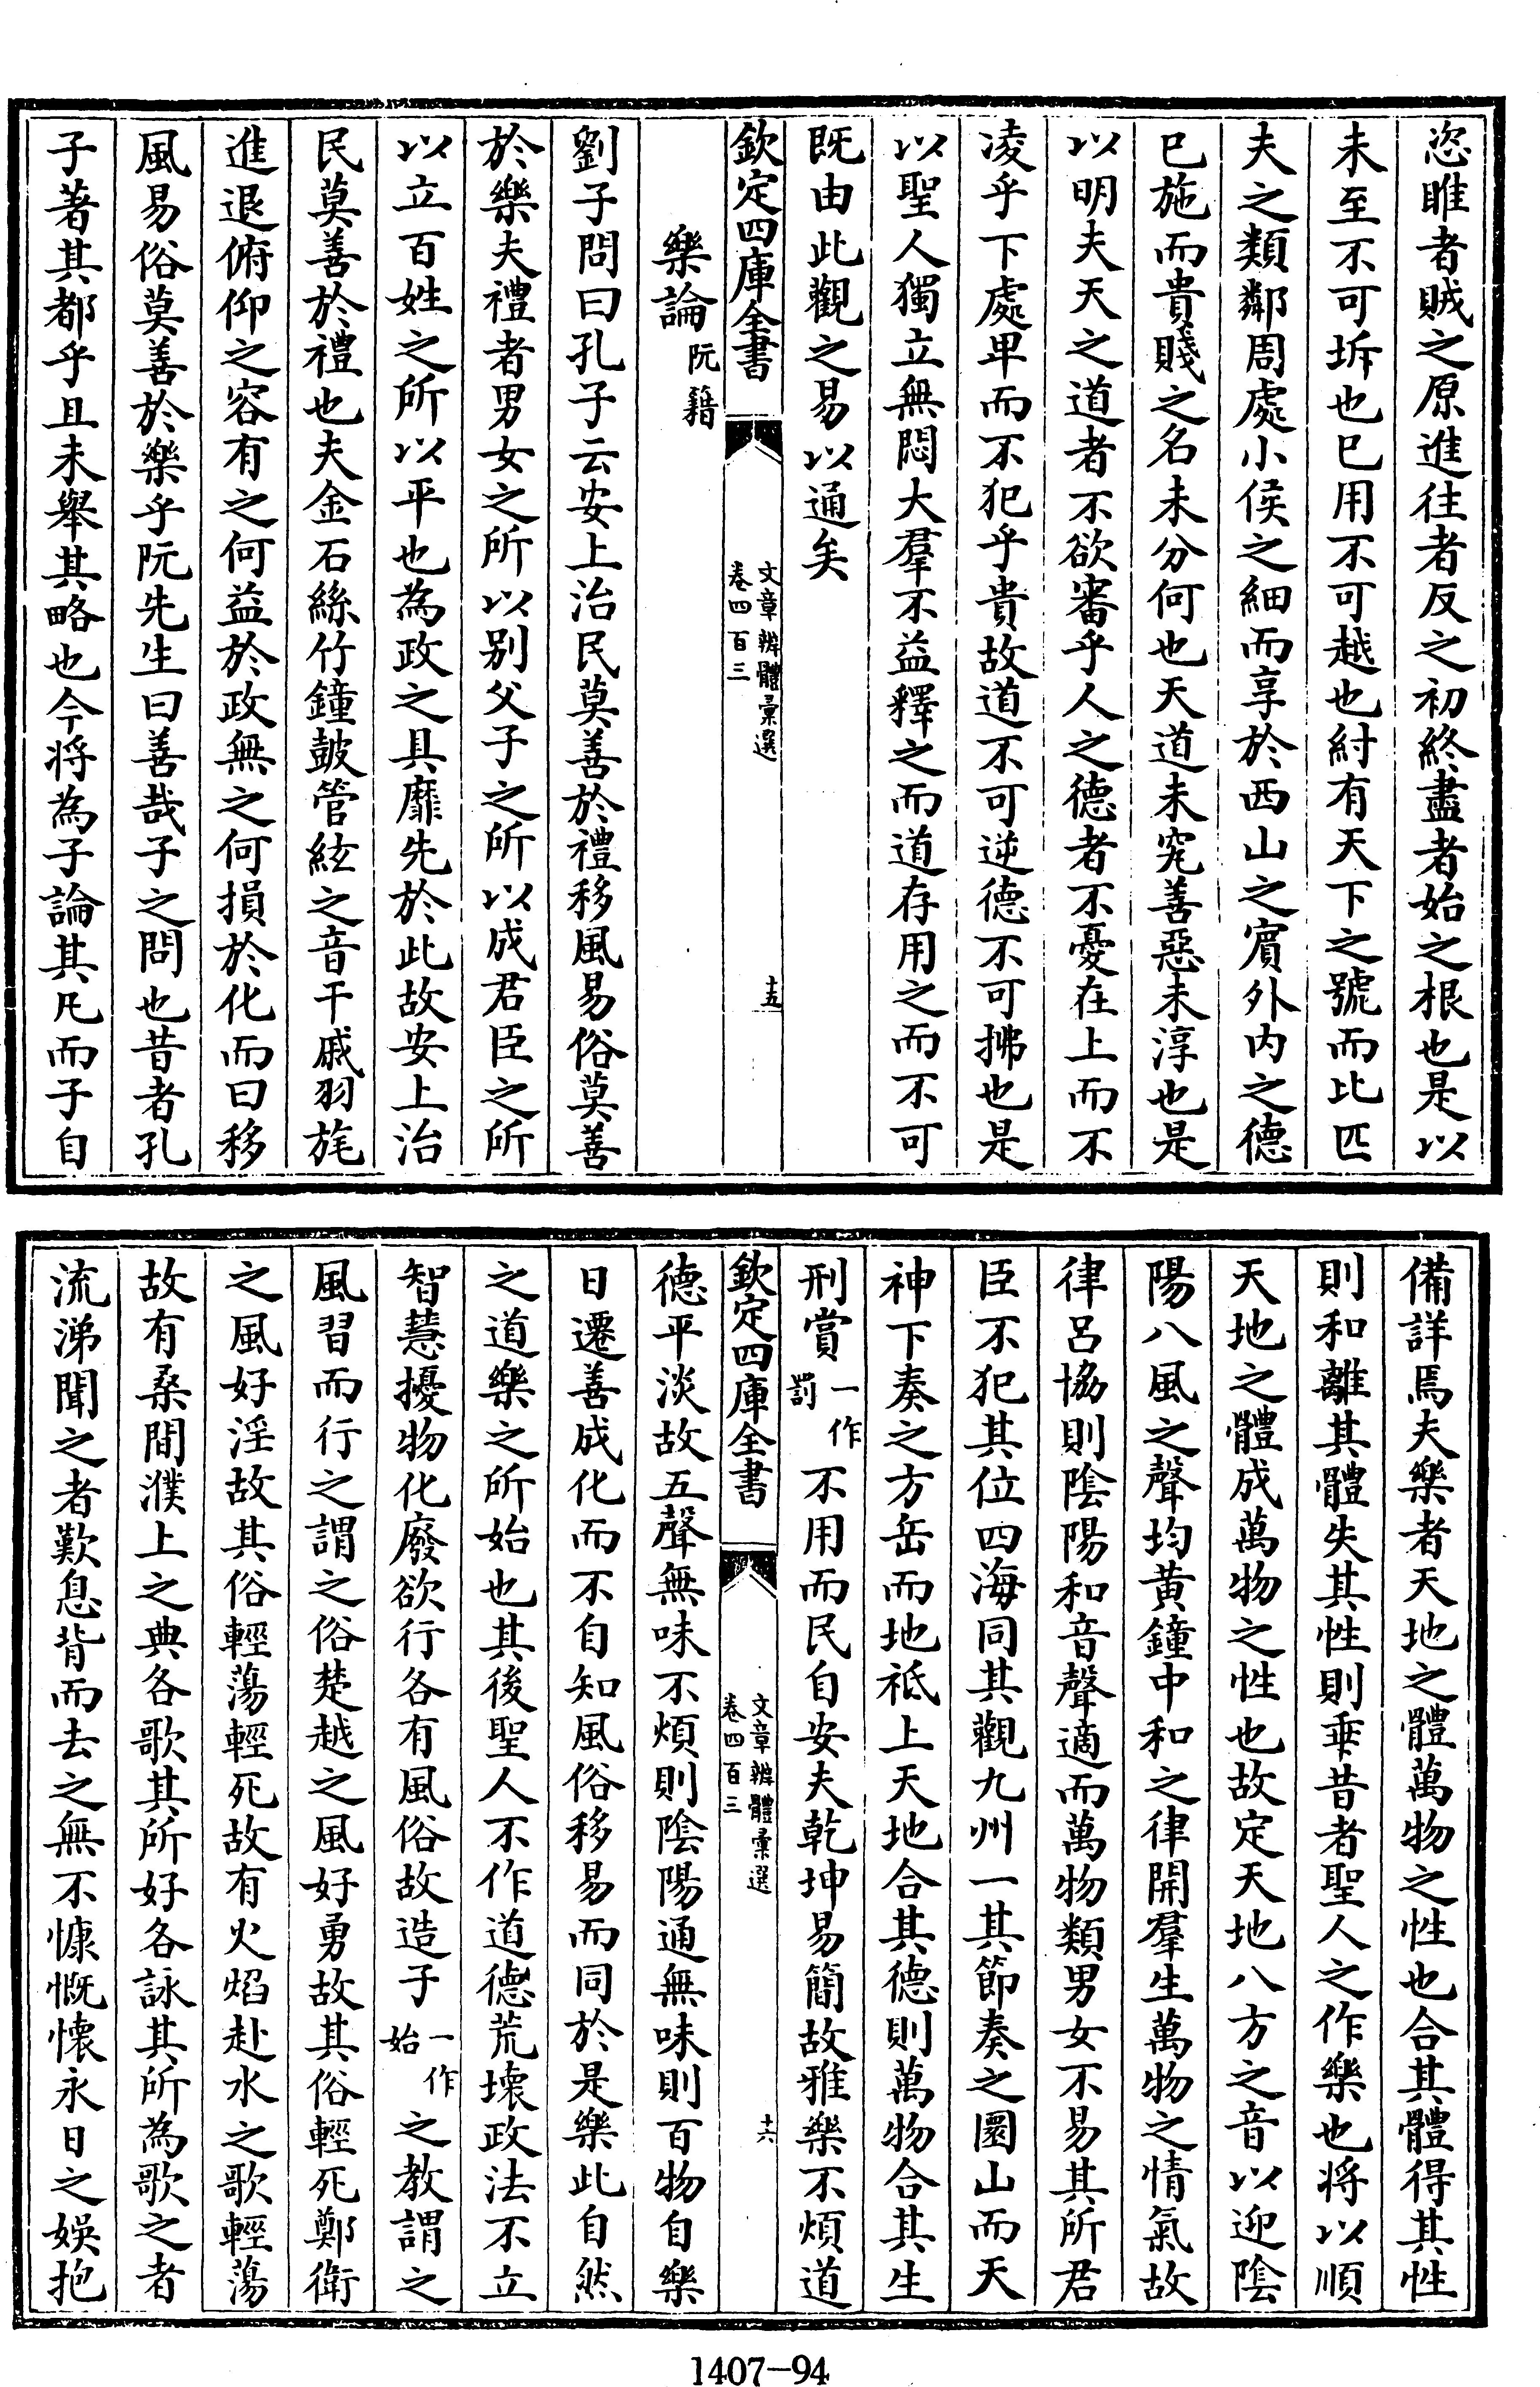 恣睢者賊之原進往者反之初終盡者始之根也是以
未至不可坼也已用不可越也紂有天下之號而比匹
夫之類鄰周處小侯之細而享於西山之賔外内之德
已施而貴賤之名未分何也天道未究善惡未淳也是
以明夫天之道者不欲審乎人之德者不憂在上而不
凌乎下處卑而不犯乎貴故道不可逆德不可拂也是
以聖人獨立無悶大羣不益釋之而道存用之而不可
既由此觀之易以通矣
欽定四庫全書
文章辨體彙選
卷四百三
十五
樂論 阮籍
劉子問曰孔子云安上治民莫善於禮移風易俗莫善
於樂夫禮者男女之所以别父子之所以成君臣之所
以立百姓之所以平也為政之具靡先於此故安上治
民莫善於禮也夫金石絲竹鐘鼓管絃之音干戚羽旄
進退俯仰之容有之何益於政無之何損於化而曰移
風易俗莫善於樂乎阮先生曰善哉子之問也昔者孔
子著其都乎且未舉其略也今将為子論其凡而子自
備詳焉夫樂者天地之體萬物之性也合其體得其性
則和離其體失其性則乖昔者聖人之作樂也将以順
天地之體成萬物之性也故定天地八方之音以迎陰
陽八風之聲均黄鐘中和之律開羣生萬物之情氣故
律吕協則陰陽和音聲適而萬物類男女不易其所君
臣不犯其位四海同其觀九州一其節奏之圜山而天
神下奏之方岳而地祗上天地合其德則萬物合其生
刑賞一作罰不用而民自安夫乾坤易簡故雅樂不煩道
欽定四庫全書
文章辨體彙選
卷四百三
十六
德平淡故五聲無味不煩則陰陽通無味則百物自樂
日遷善成化而不自知風俗移易而同於是樂此自然
之道樂之所始也其後聖人不作道德荒壞政法不立
智慧擾物化廢欲行各有風俗故造子一作始之教謂之
風習而行之謂之俗楚越之風好勇故其俗輕死鄭衛
之風好淫故其俗輕蕩輕死故有火焰赴水之歌輕蕩
故有桑間濮上之典各歌其所好各詠其所為歌之者
流涕聞之者歎息背而去之無不慷慨懐永日之娛抱
1407-94